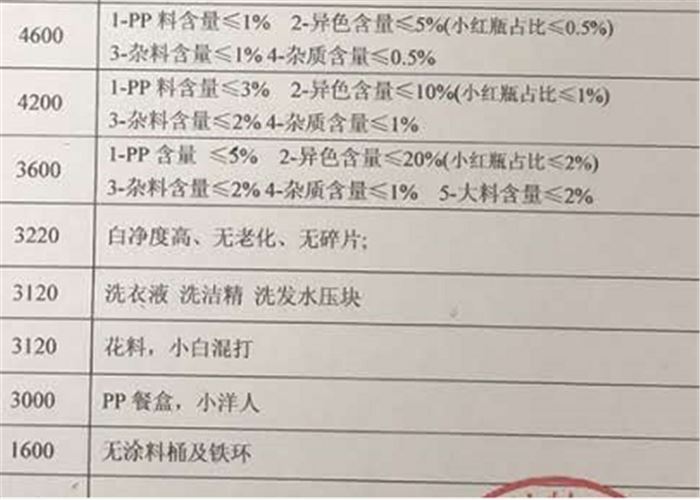 4600
1-PP 料含量≤1% 2-异色含量≤5%(小红瓶占比≤0.5%)
3-杂料含量≤1% 4-杂质含量≤0.5%
4200
1-PP 料含量≤3% 2-异色含量≤10%(小红瓶占比≤1%)
3-杂料含量≤2% 4-杂质含量≤1%
3600
1-PP 含量 ≤5% 2-异色含量≤20%(小红瓶占比≤2%)
3-杂料含量≤2% 4-杂质含量≤1% 5-大料含量≤2%
3220 白净度高、无老化、无碎片;
3120 洗衣液 洗洁精 洗发水压块
3120 花料，小白混打
3000 PP 餐盒，小洋人
1600 无涂料桶及铁环